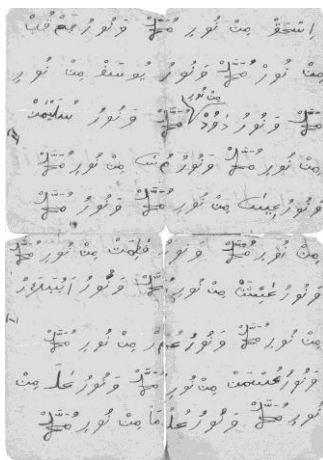 اِسْحَقْ مِنْ نُورِ مُحَمَّدْ وَنُورُ يَعْقُبْ
مِنْ نُورْ مُحَمَّدْ وَنُورُ يُوسَفْ مِنْ نُورِ
مُحَمَّدْ وَنُورُ دَاوُدْ مِنْ نُورِ مُحَمَّدْ وَنُورُ سُلَيْمٰنْ
مِنْ نُورِ مُحَمَّدْ وَنُورُ مُوسٰى مِنْ نُورِ مُحَمَّدْ
وَنُورُ عِيسٰى مِنْ نُورِ مُحَمَّدْ وَنُورُ مُحَمَّدْ
مِنْ نُورِ مُحَمَّدْ وَنُورُ فٰطِمَتْ مِنْ نُورِ مُحَمَّدْ
وَنُورُ عَيْشَتْ مِنْ نُورِ مُحَمَّدْ وَنُورُ اَبُبَكَرْ
مِنْ نُورِ مُحَمَّدْ وَنُورُ عُمَرْ مِنْ نُورِ مُحَمَّدْ
وَنُورُ عُثْمَنْ مِنْ نُورِ مُحَمَّدْ وَنُورُ عَلِى مِنْ
نُورِ مُحَمَّدْ وَنُورُ عُلَمَا مِنْ نُورِ مُحَمَّدْ